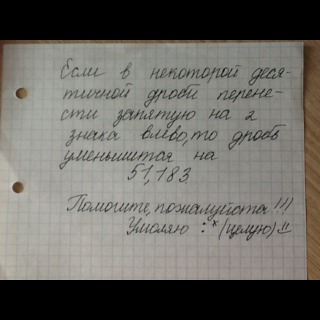 Если в некоторой деся-
тичной дроби перене-
сти запятую на 2
знака влево, то дробь
уменьшится на
51,183
Помогите, пожалуйста!!!
Умоляю :*(целую)!!